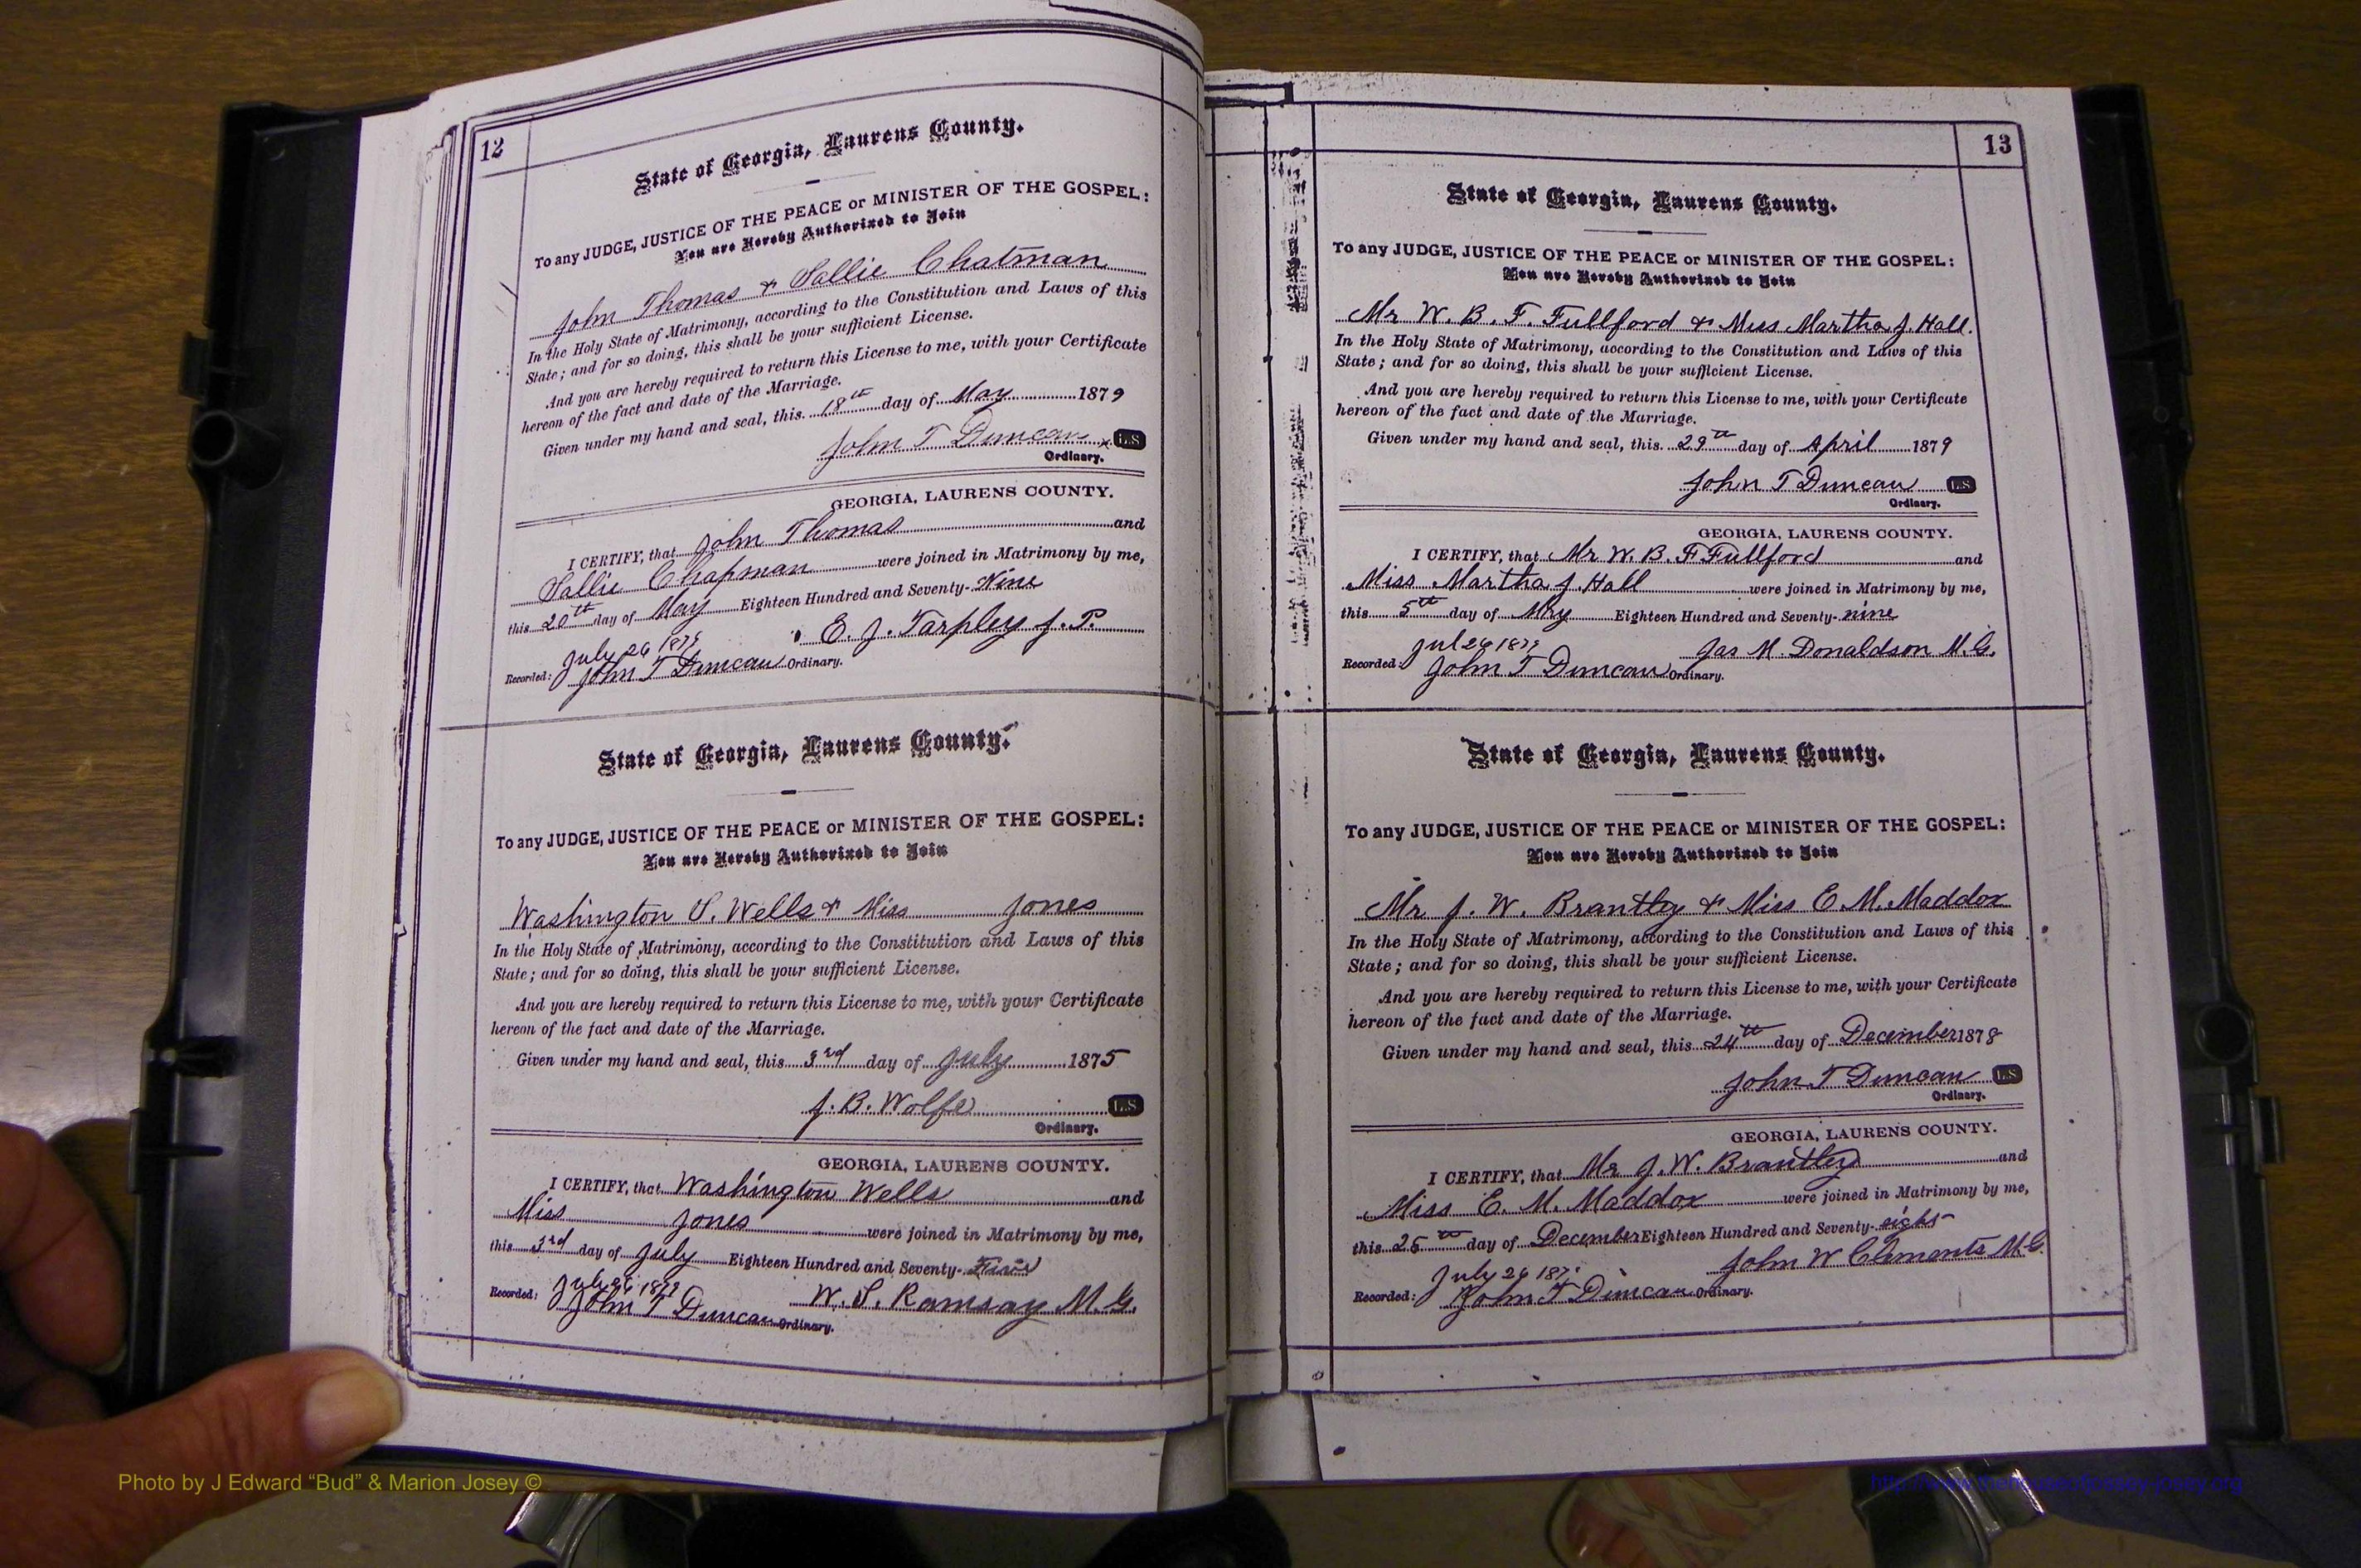 12
State of Georgia, Laurens County.
To any JUDGE, JUSTICE OF THE PEACE or MINISTER OF THE GOSPEL:
You are Hereby Authorized to Join
John Thomas & Sallie Chatman
In the Holy State of Matrimony, according to the Constitution and Laws of this
State; and for so doing, this shall be your sufficient License.
And you are hereby required to return this License to me, with your Certificate
hereon of the fact and date of the Marriage.
Given under my hand and seal, this 18th day of May 1879
John T Duncan L.S
Ordinary.
GEORGIA, LAURENS COUNTY.
I CERTIFY, that John Thomas and
Sallie Chapman were joined in Matrimony by me,
this 20th day of May Eighteen Hundred and Seventy-Nine
E. J. Tarpley J. P.
July 26 1879
Recorded: John T Duncan Ordinary.
State of Georgia, Laurens County.
To any JUDGE, JUSTICE OF THE PEACE or MINISTER OF THE GOSPEL:
You are Hereby Authorized to Join
Washington S. Wells & Miss Jones
In the Holy State of Matrimony, according to the Constitution and Laws of this
State; and for so doing, this shall be your sufficient License.
And you are hereby required to return this License to me, with your Certificate
hereon of the fact and date of the Marriage.
Given under my hand and seal, this 3rd day of July 1875
J. B. Wolfe L.S
Ordinary.
GEORGIA, LAURENS COUNTY.
I CERTIFY, that Washington Wells and
Miss Jones were joined in Matrimony by me,
this 3rd day of July Eighteen Hundred and Seventy-Five
July 26 1879 W. S. Ramsay M. G.
Recorded: John T Duncan Ordinary.
13
State of Georgia, Laurens County.
To any JUDGE, JUSTICE OF THE PEACE or MINISTER OF THE GOSPEL:
You are Hereby Authorized to Join
Mr W. B. F. Fullford & Miss Martha J. Hall.
In the Holy State of Matrimony, according to the Constitution and Laws of this
State; and for so doing, this shall be your sufficient License.
And you are hereby required to return this License to me, with your Certificate
hereon of the fact and date of the Marriage.
Given under my hand and seal, this 29th day of April 1879
John T Duncan L.S
Ordinary.
GEORGIA, LAURENS COUNTY.
I CERTIFY, that Mr W. B. F Fullford and
Miss Martha J. Hall were joined in Matrimony by me,
this 5th day of May Eighteen Hundred and Seventy-nine
Jul 26 1879 Jas M. Donaldson M. G.
Recorded: John T Duncan Ordinary.
State of Georgia, Laurens County.
To any JUDGE, JUSTICE OF THE PEACE or MINISTER OF THE GOSPEL:
You are Hereby Authorized to Join
Mr J. W. Brantley & Miss E M. Maddox
In the Holy State of Matrimony, according to the Constitution and Laws of this
State; and for so doing, this shall be your sufficient License.
And you are hereby required to return this License to me, with your Certificate
hereon of the fact and date of the Marriage.
Given under my hand and seal, this 24th day of December 1878
John T Duncan L.S
Ordinary.
GEORGIA, LAURENS COUNTY.
I CERTIFY, that Mr J. W. Brantley and
Miss E. M. Maddox were joined in Matrimony by me,
this 25th day of December Eighteen Hundred and Seventy-eight
John W Clements M.G.
July 26
Recorded: John T Duncan Ordinary.
Photo by J Edward “Bud” & Marion Josey ©